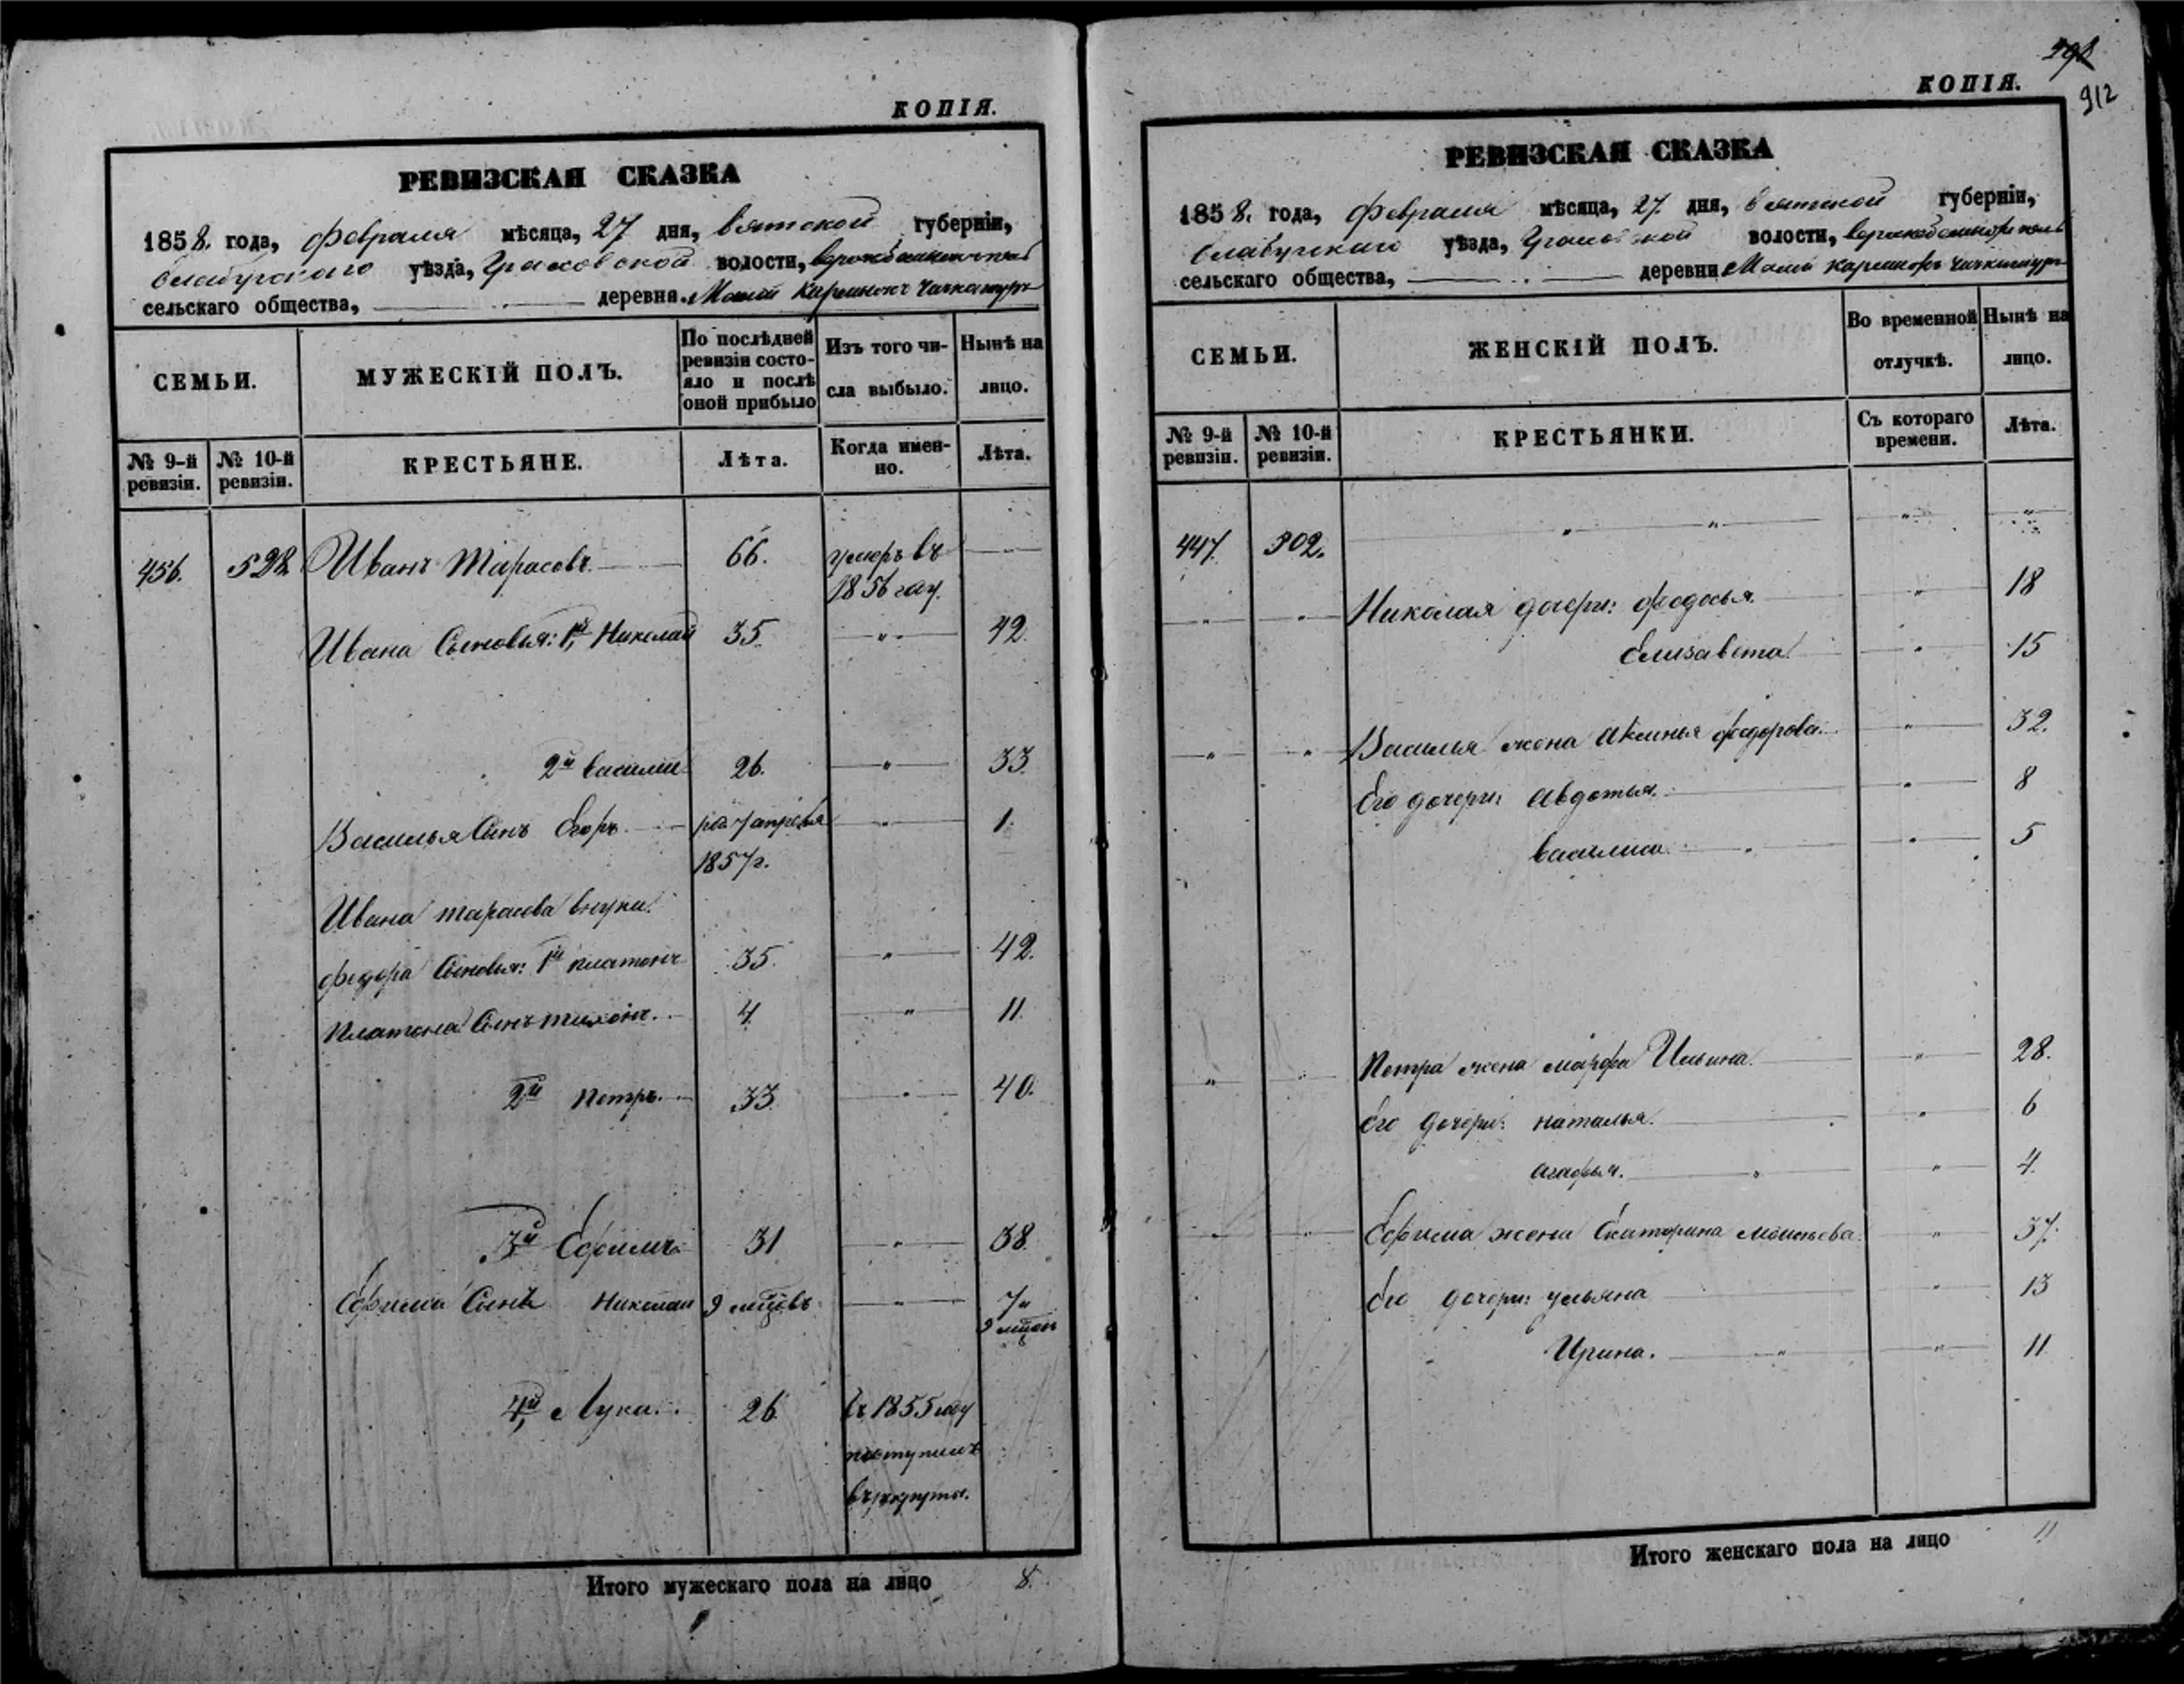 КОПІЯ.
РЕВИЗСКАЯ СКАЗКА
1858. года, февраля мѣсяца, 27 дня, Вятской губерніи,
Елабугскаго уѣзда, Граховской волости,
сельскаго общества, деревня
СЕМЬИ.
МУЖЕСКІЙ ПОЛЪ.
По послѣдней ревизіи состояло и послѣ оной прибыло
Изъ того числа выбыло.
Нынѣ на лицо.
№ 9-й ревизіи.
№ 10-й ревизіи.
КРЕСТЬЯНЕ.
Лѣта.
Когда именно.
Лѣта.
456. 528 Иванъ Тарасовъ. 66. умеръ въ
1856 году.
Ивана Сыновья: 1й Николай 35. 42.
2й Василий 26. 33.
Василья Сынъ Егоръ. 7 апреля 1.
1857г.
Ивана Тарасова внуки.
Федора Сыновья: 1й Платонъ 35. 42.
Платона Сынъ Тихонъ. 4. 11.
2й Петръ. 33. 40.
3й Ефимъ 31 38.
Ефима Сынъ Николай 9 мцовъ 7 и
9 мцовъ
4й Лука. 26. въ 1855 году
поступилъ
въ рекруты.
Итого мужескаго пола на лицо 8.
912
КОПІЯ.
РЕВИЗСКАЯ СКАЗКА
1858. года, февраля мѣсяца, 27. дня, Вятской губерніи,
Елабугскаго уѣзда, Граховской волости,
сельскаго общества, деревни
СЕМЬИ.
ЖЕНСКІЙ ПОЛЪ.
Во временной отлучкѣ.
Нынѣ на лицо.
№ 9-й ревизіи.
№ 10-й ревизіи.
КРЕСТЬЯНКИ.
Съ котораго времени.
Лѣта.
447. 302.
Николая дочери: Федосья. 18
Елизавета. 15
Василья жена Акилина Федорова. 32.
Его дочери: Авдотья. 8
Василиса. 5
Петра жена Марфа Ильина. 28.
Его дочери: Наталья. 6
Агафья. 4.
Ефима жена Екатерина Моисѣева. 37.
Его дочери: Ульяна 13
Ирина. 11
Итого женскаго пола на лицо 11